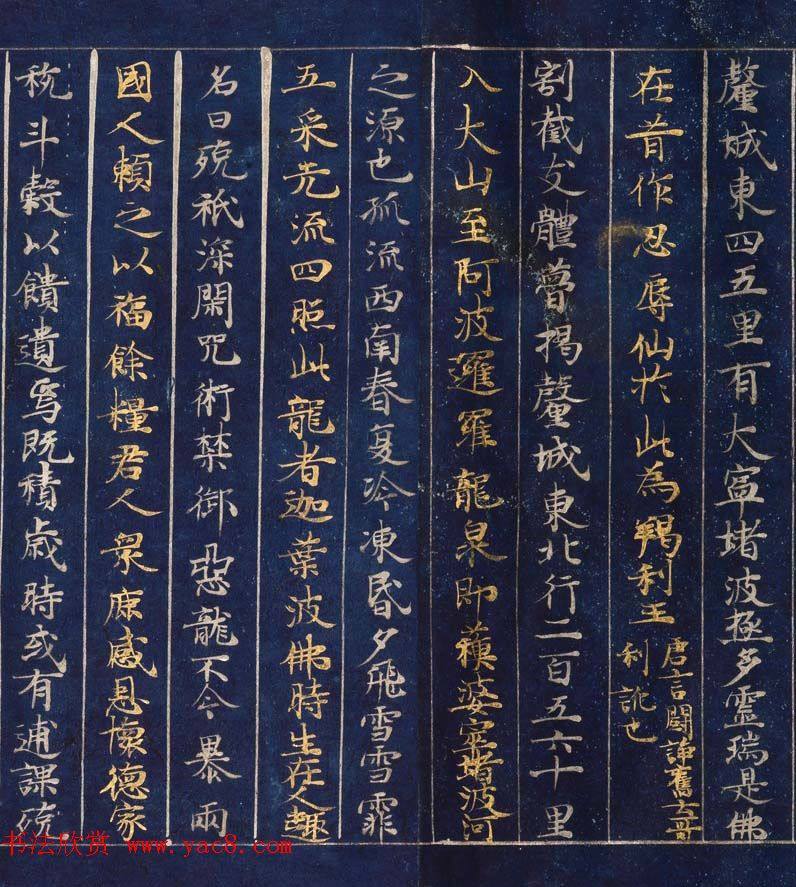 釐城東四五里有大窣堵波極多靈瑞是佛
在昔作忍辱仙於此為羯利王唐言鬪諍舊云哥利訛也
割截支體瞢揭釐城東北行二百五六十里
入大山至阿波邏羅龍泉即蘇婆窣堵波河
之源也孤流西南春夏冷凍昏夕飛雪雪霏
五采光流四照此龍者迦葉波佛時生在人趣
名曰殑祇深閑咒術禁御惡龍不令暴雨
國人賴之以稸餘糧君人眾庶感恩懷德家
稅斗穀以饋遺焉既積歲時或有逋課殑
书法欣赏 www.yac8.com